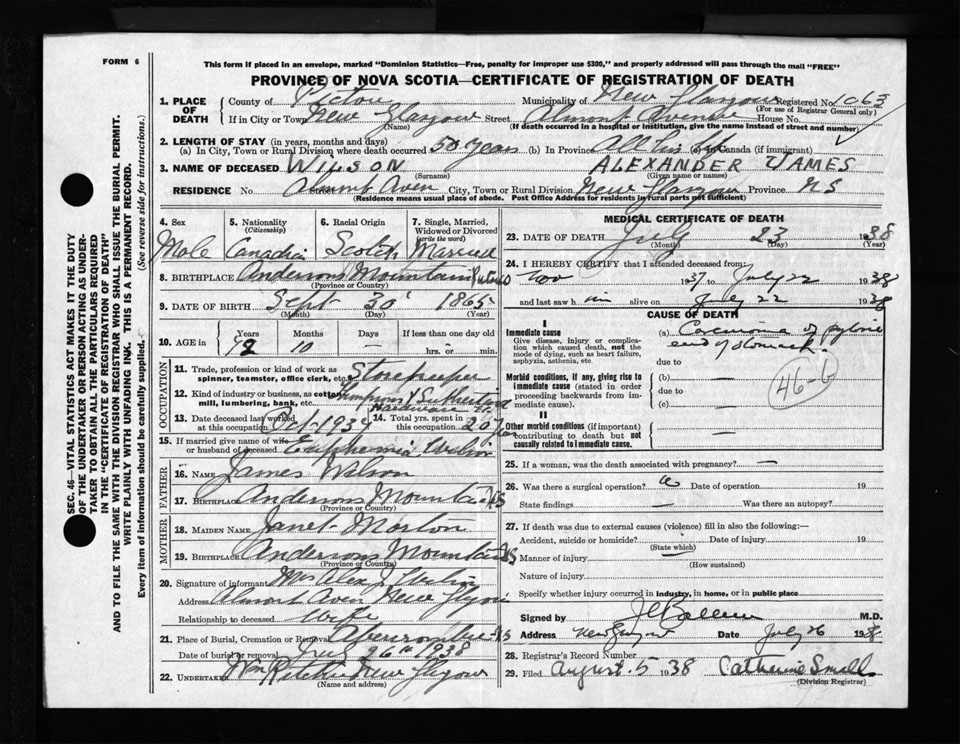 FORM 6
This form if placed in an envelope, marked "Dominion Statistics—Free, penalty for improper use $300," and properly addressed will pass through the mail "FREE"
PROVINCE OF NOVA SCOTIA—CERTIFICATE OF REGISTRATION OF DEATH
SEC. 46—VITAL STATISTICS ACT MAKES IT THE DUTY
OF THE UNDERTAKER OR PERSON ACTING AS UNDER-
TAKER TO OBTAIN ALL THE PARTICULARS REQUIRED
IN THE "CERTIFICATE OF REGISTRATION OF DEATH"
AND TO FILE THE SAME WITH THE DIVISION REGISTRAR WHO SHALL ISSUE THE BURIAL PERMIT.
WRITE PLAINLY WITH UNFADING INK. THIS IS A PERMANENT RECORD.
Every item of information should be carefully supplied. (See reverse side for instructions.)
1. PLACE OF DEATH County of Pictou Municipality of New Glasgow Registered No. 1063
(For use of Registrar General only)
If in City or Town New Glasgow Street Almont Avenue House No.
(Name) (If death occurred in a hospital or institution, give the name instead of street and number)
2. LENGTH OF STAY (in years, months and days)
(a) In City, Town or Rural Division where death occurred 50 years (b) In Province All his life (c) In Canada (if immigrant)
3. NAME OF DECEASED WILSON ALEXANDER JAMES
(Surname) (Given name or names)
RESIDENCE No. Street Almont Aven City, Town or Rural Division New Glasgow Province N S
(Residence means usual place of abode. Post Office Address for residents in rural parts not sufficient)
4. Sex Male
5. Nationality (Citizenship) Canadian
6. Racial Origin Scotch
7. Single, Married, Widowed or Divorced (write the word) Married
8. BIRTHPLACE Andersons Mountain Pictou Co
(Province or Country)
9. DATE OF BIRTH Sept 30 1865
(Month) (Day) (Year)
10. AGE in Years 72 Months 10 Days — If less than one day old hrs. or min.
OCCUPATION
11. Trade, profession or kind of work as spinner, teamster, office clerk, etc. Storekeeper
12. Kind of industry or business, as cotton mill, lumbering, bank, etc. Simpsons & Sutherland Hardware St.
13. Date deceased last worked at this occupation Oct 1937
14. Total yrs. spent in this occupation 20 years
15. If married give name of wife or husband of deceased Euphemia Wilson
FATHER
16. NAME James Wilson
17. BIRTHPLACE Andersons Mountain NS
(Province or Country)
MOTHER
18. MAIDEN NAME Janet Morton
19. BIRTHPLACE Andersons Mountain NS
(Province or Country)
20. Signature of informant Mrs Alex J Wilson
Address Almont Aven New Glasgow
Relationship to deceased Wife
21. Place of Burial, Cremation or Removal Abercrombie NS
Date of burial or removal July 26th 1938
22. UNDERTAKER New Glasgow
(Name and address)
MEDICAL CERTIFICATE OF DEATH
23. DATE OF DEATH July 23 1938
(Month) (Day) (Year)
24. I HEREBY CERTIFY that I attended deceased from:
Nov 1937 to July 22 1938
and last saw him alive on July 22 1938
CAUSE OF DEATH
I
Immediate cause
Give disease, injury or complication which caused death, not the mode of dying, such as heart failure, asphyxia, asthenia, etc
(a) Carcinoma of pyloric
end of stomach.
due to
Morbid conditions, if any, giving rise to immediate cause (stated in order proceeding backwards from immediate cause).
(b) —
due to
(c) —
46-b
II
Other morbid conditions (if important) contributing to death but not causally related to immediate cause. —
25. If a woman, was the death associated with pregnancy? —
26. Was there a surgical operation? Date of operation 19
State findings — Was there an autopsy?
27. If death was due to external causes (violence) fill in also the following:—
Accident, suicide or homicide? Date of injury 19
(State which)
Manner of injury
(How sustained)
Nature of injury
Specify whether injury occurred in industry, in home, or in public place
Signed by M.D.
Address New Glasgow Date July 26 1938
28. Registrar's Record Number
29. Filed August 5 1938 Catherine Small
(Division Registrar)